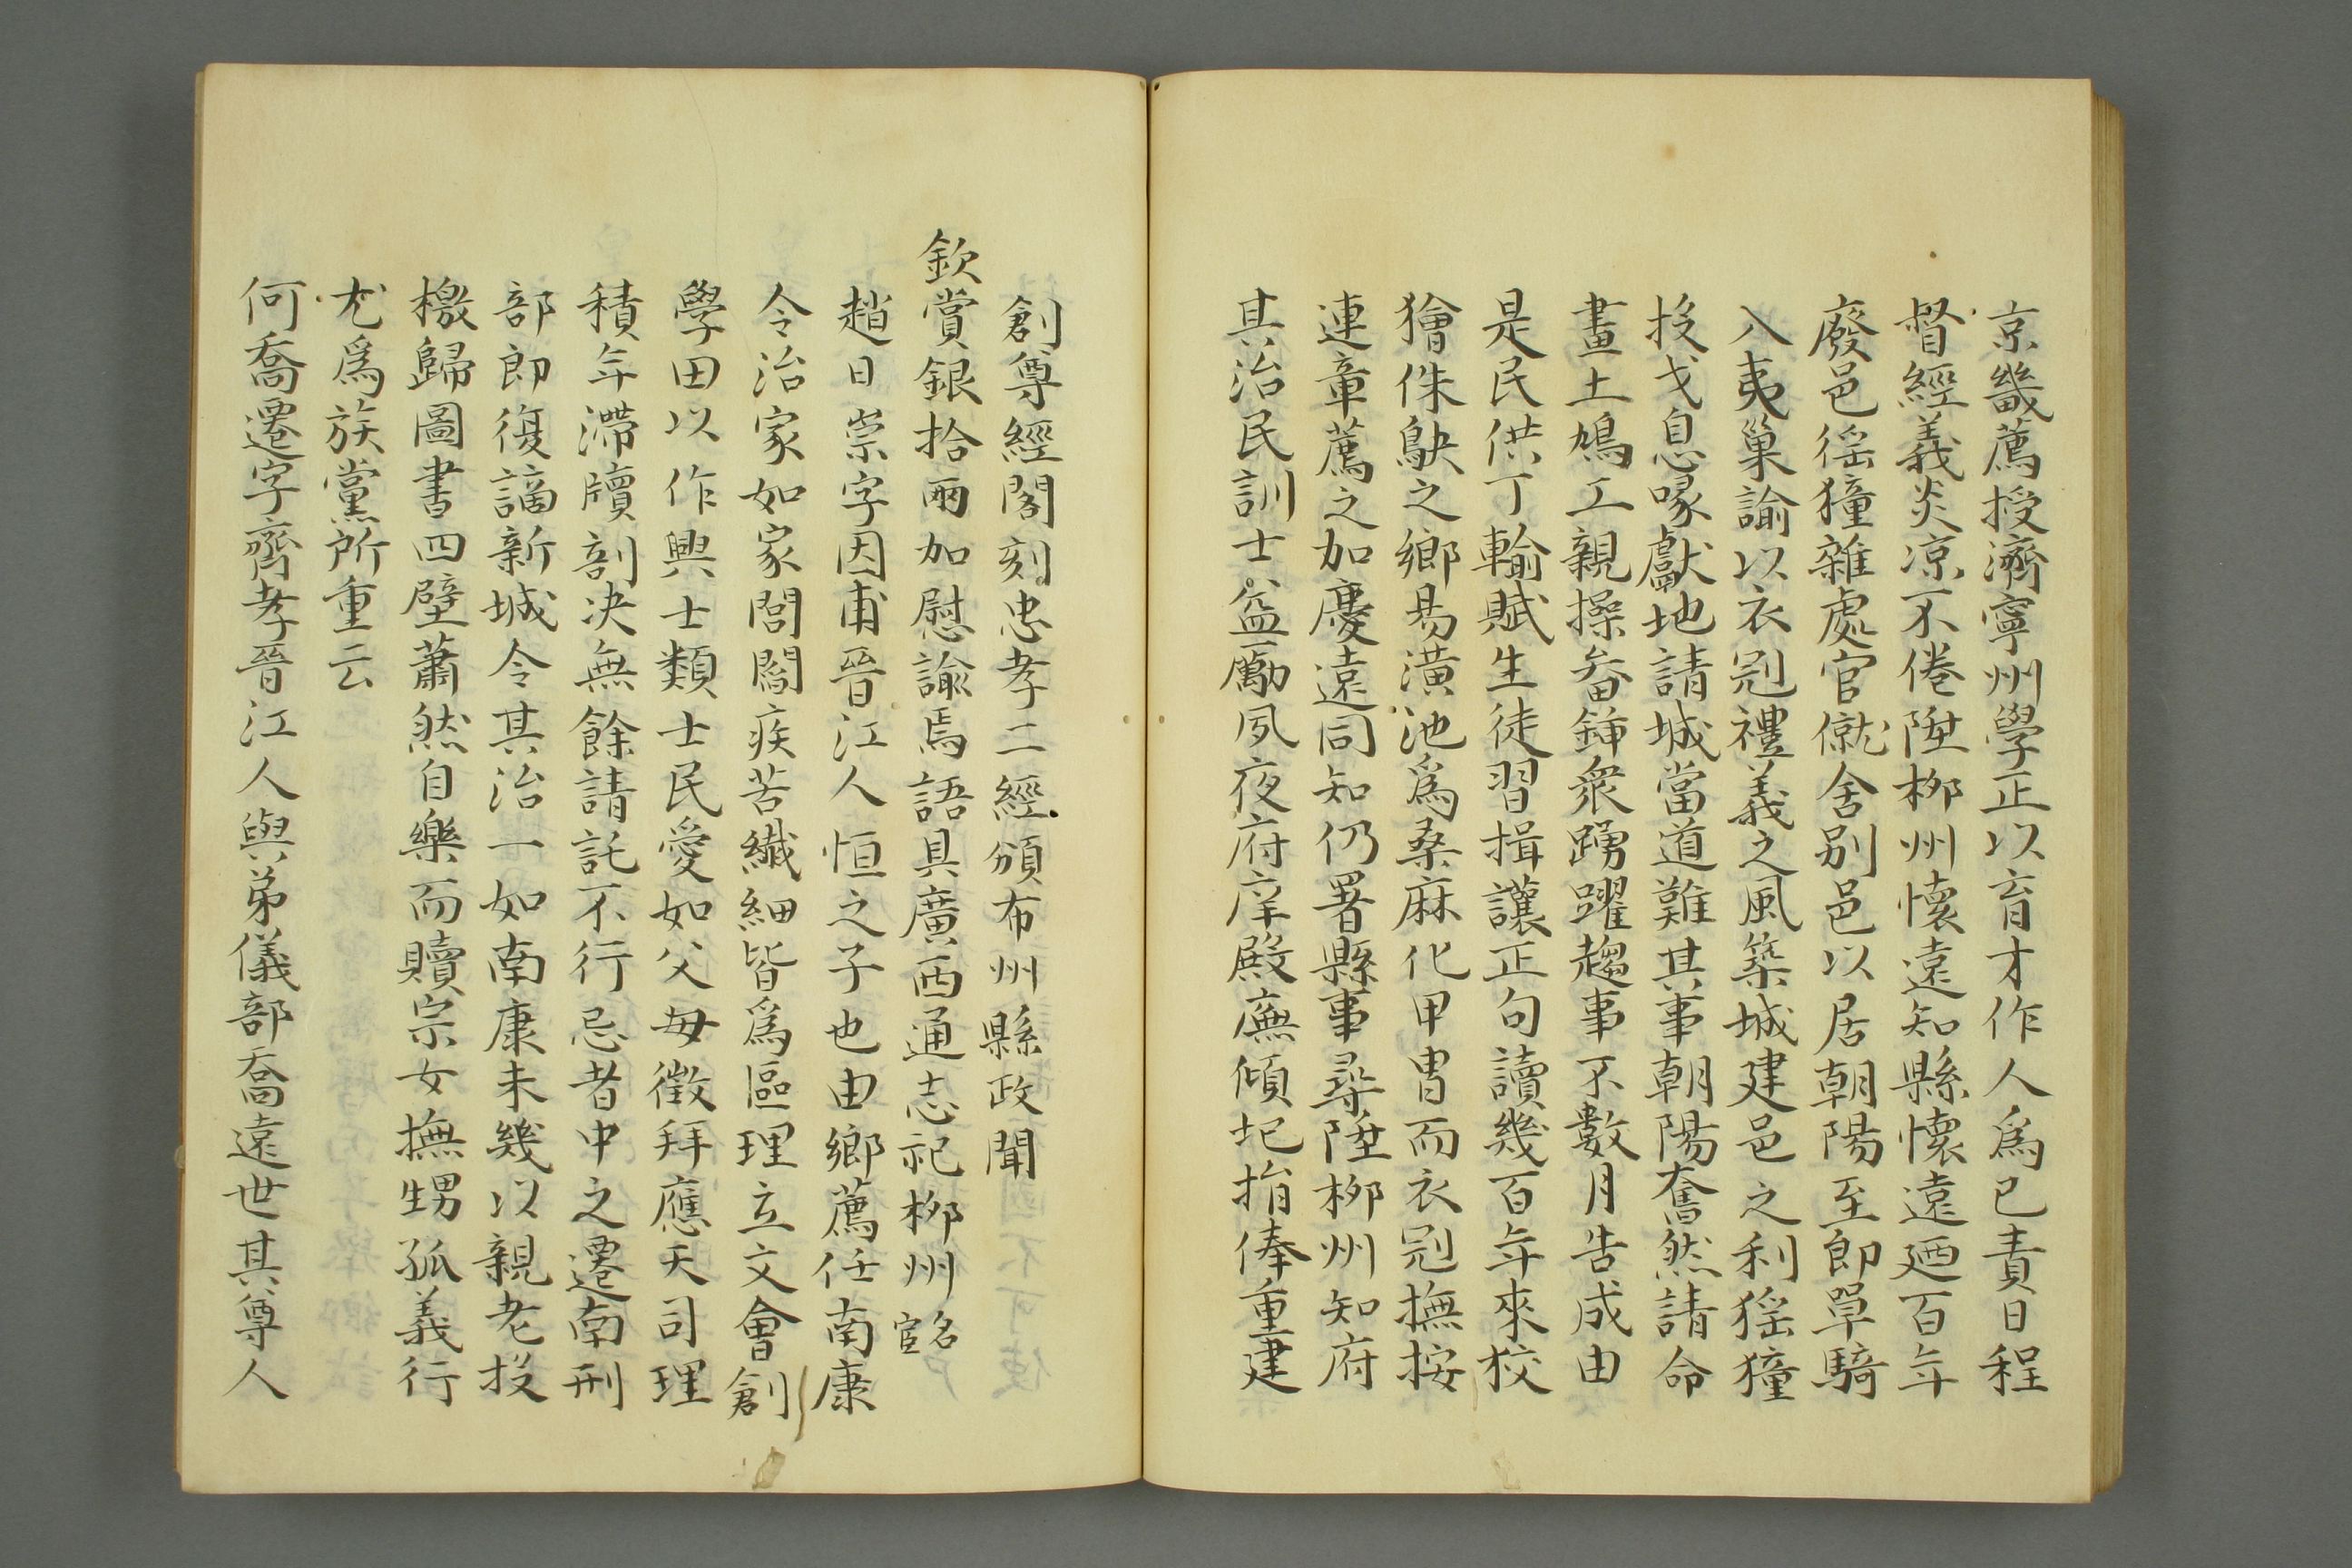 京畿薦授濟寧州學正以育才作人爲已責日程
督經義炎凉不倦陞柳州懷遠知縣懷遠廼百年
廢邑徭獞雜處官僦舍别邑以居朝陽至即單騎
入夷巢諭以衣冠禮義之風築城建邑之利猺獞
投戈息喙獻地請城當道難其事朝陽奮然請命
畫土鳩工親操畚鍤衆踴躍趨事不數月告成由
是民供丁輸賦生徒習揖讓正句讀幾百年來狡
獪侏鴃之鄉易潢池爲桑麻化甲冑而衣冠撫按
連章薦之加慶遠同知仍署縣事尋陞柳州知府
其治民訓士益勵夙夜府庠殿廡傾圮捐俸重建
創尊經閣刻忠孝二經頒布州縣政聞
欽賞銀拾兩加慰諭焉語具廣西通志祀柳州名宦
趙日崇字因甫晉江人恒之子也由鄉薦任南康
令治家如家閭閻疾苦纎細皆爲區理立文會創
學田以作興士類士民愛如父母徵拜應天司理
積年滯牘剖决無餘請託不行忌者中之遷南刑
部郎復謫新城令其治一如南康未幾以親老投
檄歸圖書四壁蕭然自樂而贖宗女撫甥孤義行
尤爲族黨所重云
何喬遷字齊孝晉江人與弟儀部喬遠世其尊人